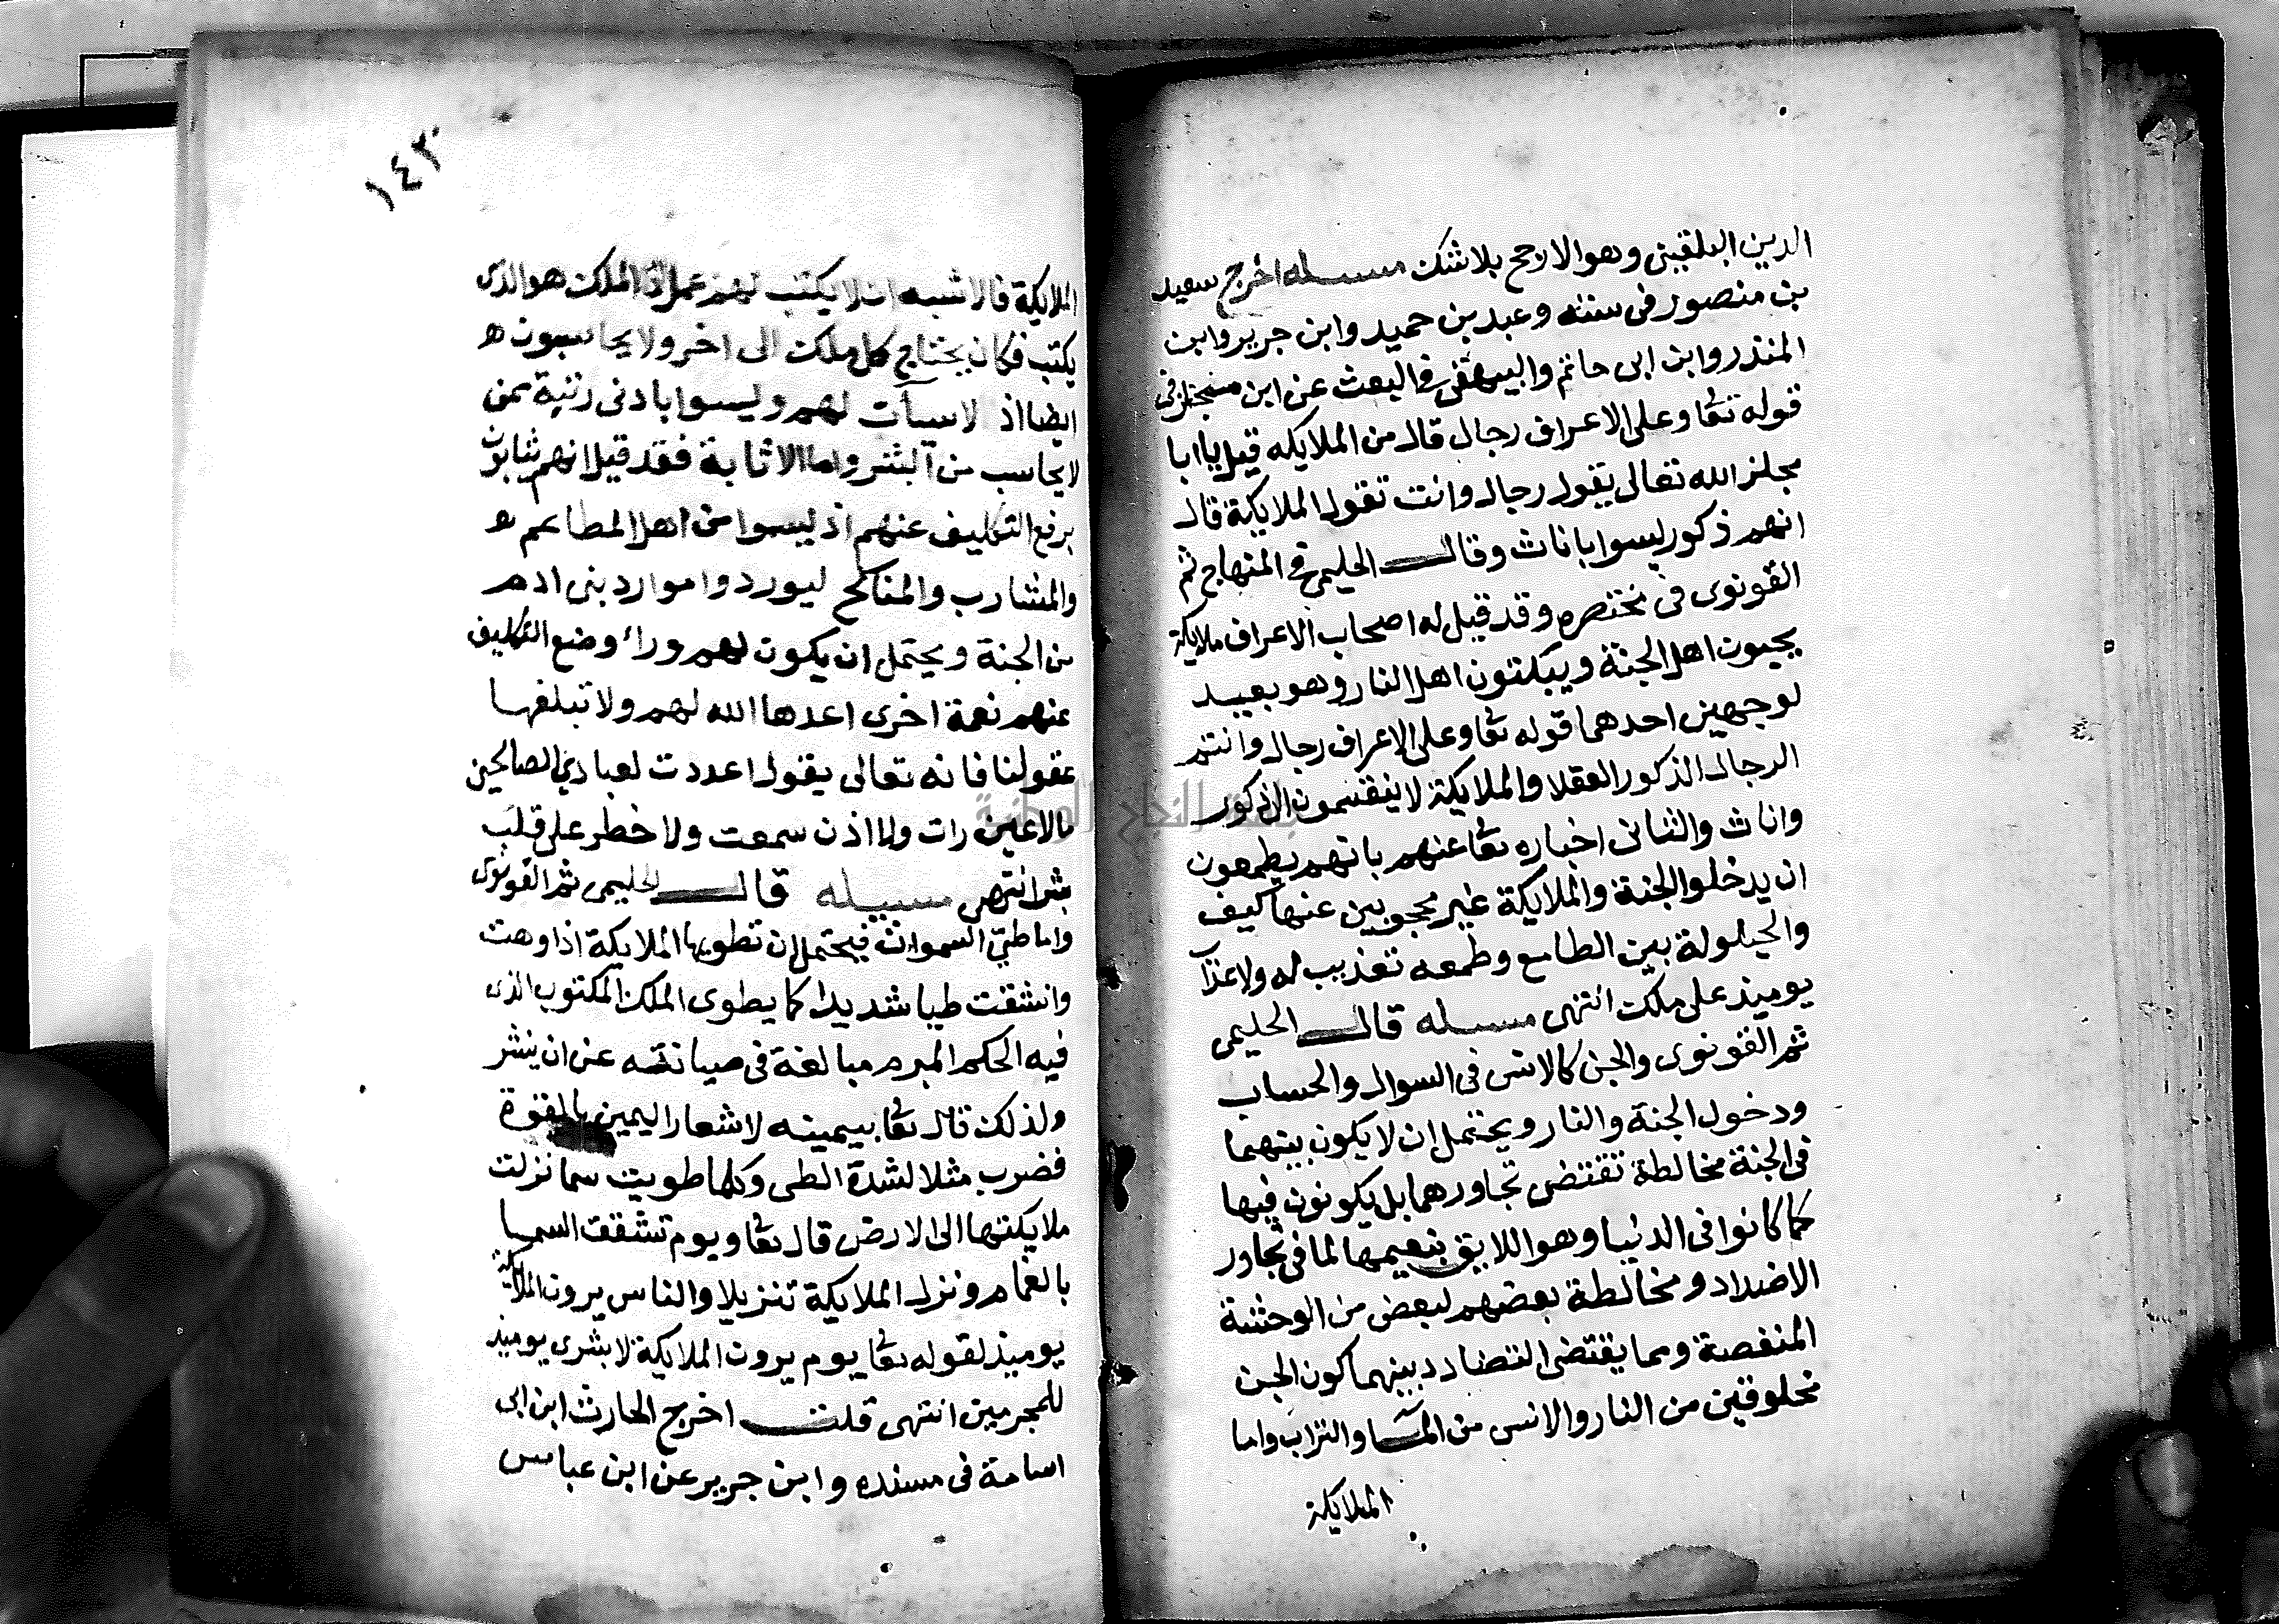 الدين البلقينى وهو الارجح بلاشك مسىله اخرج سعيد
بن منصور فى سننه وعبد بن حميد وابن جرير وابن
المنذر وابن ابى حاتم والبيهقى فى البعث عن ابن مجلز فى
قوله تعا وعلى الاعراف رجال قال من الملايكه قيل يا ابا
مجلز الله تعالى يقول رجال وانت تقول الملايكة قال
انهم ذكور ليسوا باناث وقال الحليمى فى المنهاج ثم
القونوى فى مختصره وقد قيل له اصحاب الاعراف ملايكة
يحيون اهل الجنة ويبكتون اهل النار وهو بعيد
لوجهين احدهما قوله تعا وعلى الاعراف رجال وانتم
الرجال الذكور العقلا والملايكة لا ينقسمون الى ذكور
واناث والثانى اخباره تعا عنهم بانهم يطمعون
ان يدخلوا الجنة والملايكة غير محجوبين عنها كيف
والحيلولة بين الطامع وطمعه تعذيب له ولا عذاب
يوميذ على ملك انتهى مسىله قال الحليمى
ثم القونوى والجن كالانس فى السوال والحساب
ودخول الجنة والنار ويحتمل ان لا يكون بينهما
فى الجنة مخالطة تقتضى تجاورهما بل يكونون فيها
كما كانوا فى الدنيا وهو اللايق بنعيمها لما فى تجاور
الاضداد ومخالطة بعضهم لبعض من الوحشة
المنغصة ومما يقتضى التضادد بينهما كون الجن
مخلوقين من النار والانس من المآ والتراب واما
الملايكة
١٤٣
الملايكة فالاشبه ان لا يكتب لهم عمل اذ الملك هو الذى
يكتب فكان يحتاج كل ملك الى اخر ولا يحاسبون ه
ايضا اذ لا سيآت لهم وليسوا بادنى رتبة ممن
لا يحاسب من البشر واما الاثابة فقد قيل انهم يثابون
برفع التكليف عنهم اذ ليسوا من اهل المطاعم ه
والمشارب والمناكح ليوردوا موارد بنى ادم
من الجنة ويحتمل ان يكون لهم ورا وضع التكليف
عنهم نعمة اخرى اعدها الله لهم ولا تبلغها
عقولنا فانه تعالى يقول اعددت لعبادي الصالحين
مالا عين رات ولا اذن سمعت ولا خطر على قلب
بشر انتهى مسيله قال الحليمى ثم القونوى
واما طيّ السموات فيحتمل ان تطويها الملايكة اذا وهت
وانشقت طيا شديدا كما يطوى الملك المكتوب الذى
فيه الحكم المبرم مبالغة فى صيانته عن ان ينشر
ولذلك قال تعا بيمينه لاشعار اليمين بالقوة
فضرب مثلا لشدة الطى وكلما طويت سما نزلت
ملايكتها الى الارض قال تعا ويوم تشقق السما
بالغمام ونزل الملايكة تنزيلا والناس يرون الملايكة
يوميذ لقوله تعا يوم يرون الملايكة لا بشرى يوميذ
للمجرمين انتهى قلت اخرج الحارث ابن ابى
اسامة فى مسنده وابن جرير عن ابن عباس
جامعة النجاح الوطنية